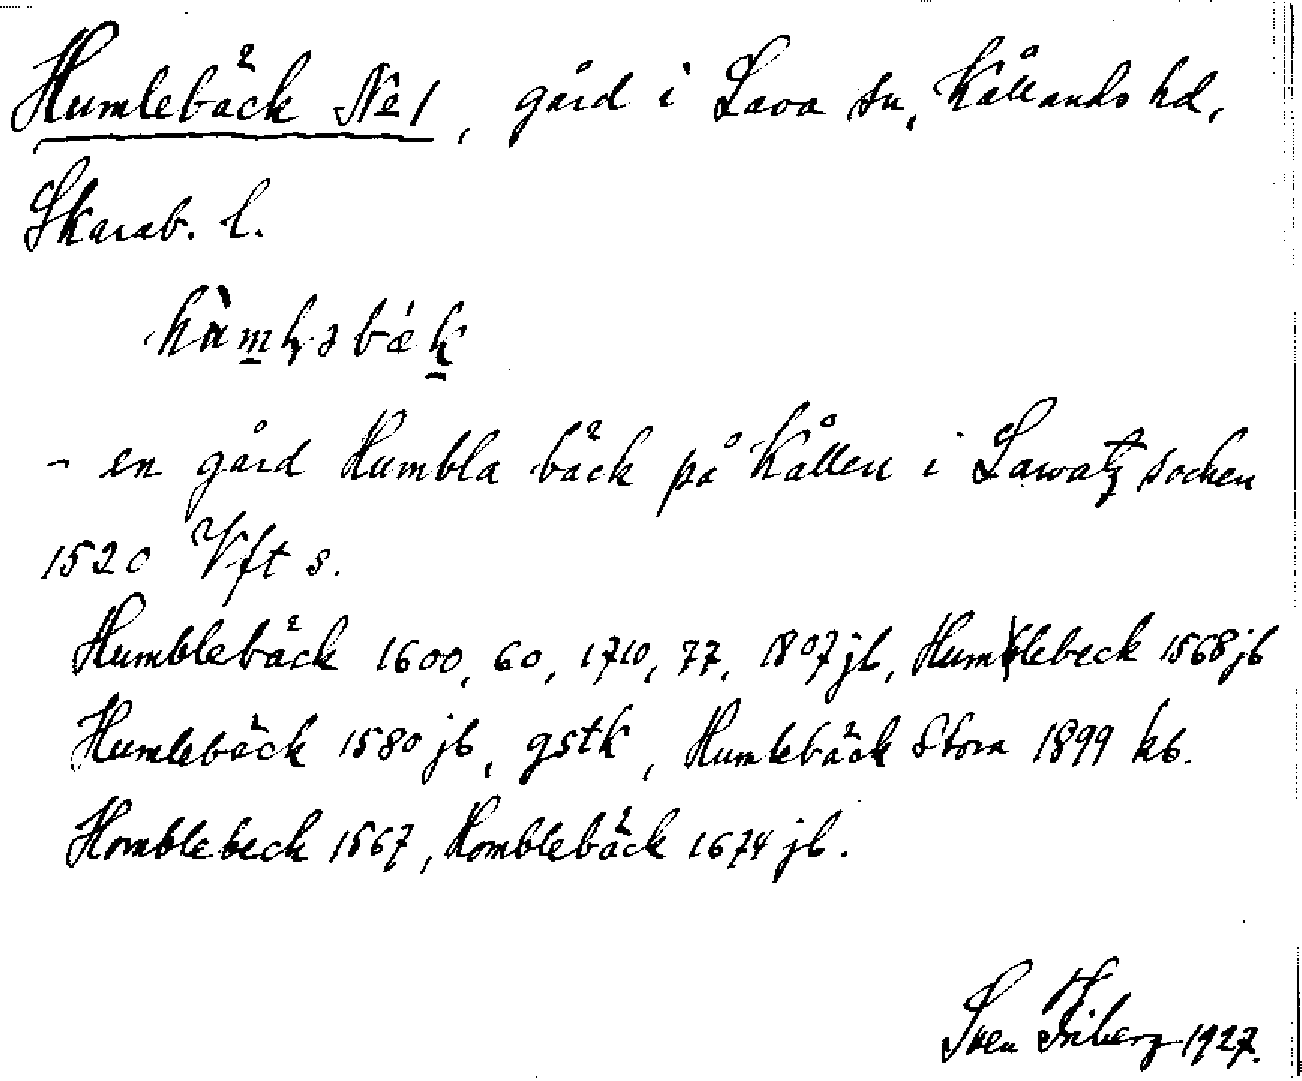 Humlebäck No 1, gård i Lava sn, Kållands hd,
Skarab. l.
- en gård Humbla bäck på Kållen i Lawatz socken
1520 Vft s.
Humblebäck 1600, 60, 1710, 77, 1807 jb, Humblebeck 1568 jb
Humlebäck 1580 jb, gstk, Humlebäck Stora 1899 kb.
Homblebeck 1567, Homblebäck 1674 jb.
Sven Friberg 1927.